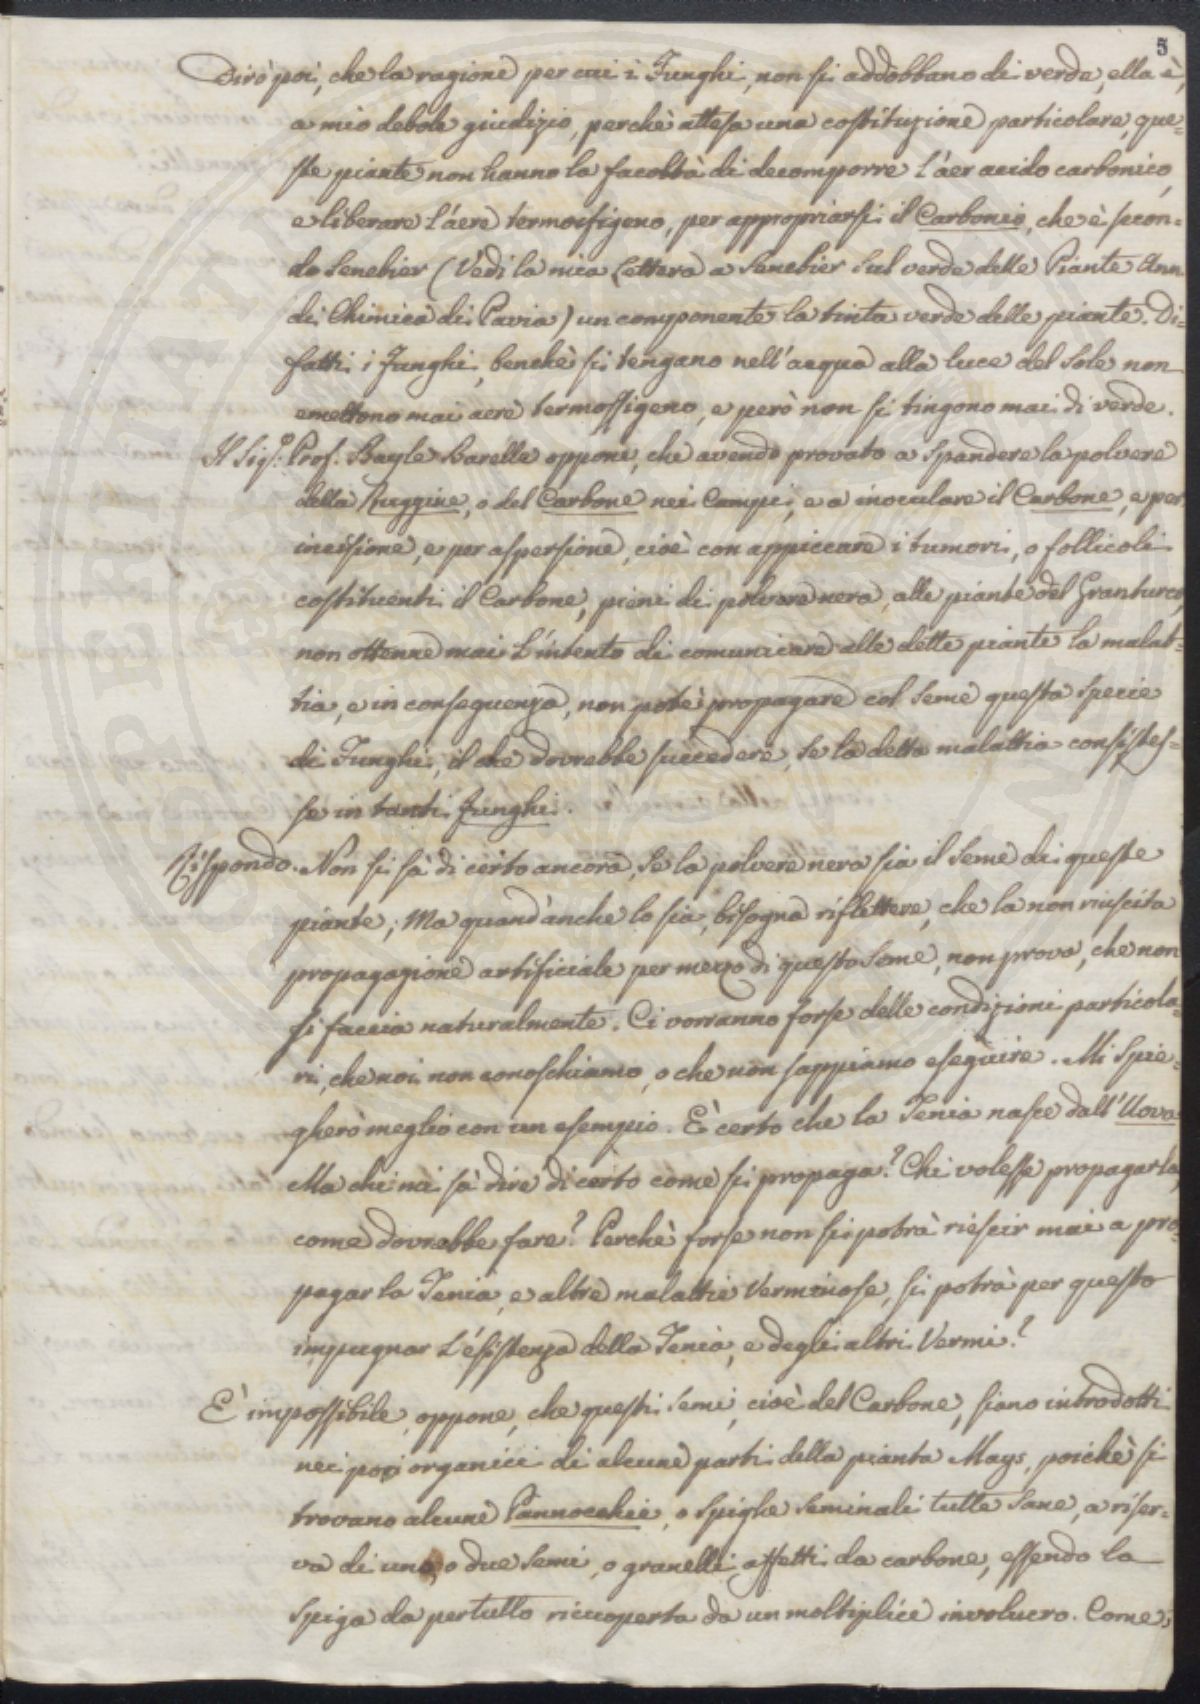 5
Dirò poi, che la ragione per cui i Funghi non si addobbano di verde, ella è,
a mio debole giudizio, perchè attesa una costituzione particolare, que=
ste piante non hanno la facoltà di decomporre l'aer acido carbonico,
e liberare l'aere termossigeno, per appropriarsi il Carbonio, che è secon=
do Senebier (Vedi la mia Lettera a Senebier sul verde delle Piante Ann.
di Chimica di Pavia) un componente la tinta verde delle piante. Di=
fatti i Funghi, benchè si tengano nell'acqua alla luce del Sole non
emettono mai aere termossigeno, e però non si tingono mai di verde.
Il Sig.º Prof. Bayle Barelle oppone, che avendo provato a spandere la polvere
della Ruggine, o del Carbone nei Campi, e a inoculare il Carbone, e per
incisione, e per aspersione, cioè con appiccare i tumori, o follicoli
costituenti il Carbone, pieni di polvere nera, alle piante del Granturco,
non ottenne mai l'intento di comunicare alle dette piante la malat=
tia, e in conseguenza, non potè propagare col seme questa specie
di Funghi, il che dovrebbe succedere, se la detta malattia consistes=
se in tanti Funghi.
Rispondo. Non si sà di certo ancora, se la polvere nera sia il seme di queste
piante; Ma quand'anche lo sia, bisogna riflettere, che la non riuscita
propagazione artificiale per mezzo di questo Seme, non prova, che non
si faccia naturalmente. Ci vorranno forse delle condizioni particola=
ri, che noi non conoschiamo, o che non sappiamo eseguire. Mi spie=
gherò meglio con un esempio. È certo che la Tenia nasce dall'Uova.
Ma chi mi sà dire di certo come si propaga? Chi volesse propagarla,
come dovrebbe fare? Perchè forse non si potrà riescir mai a pro=
pagar la Tenia, e altre malattie Verminose, si potrà per questo
impugnar l'esistenza della Tenia, e degli altri Vermi?
È impossibile, oppone, che questi semi, cioè del Carbone, siano introdotti
nei pori organici di alcune parti della pianta Mays, poichè si
trovano alcune Pannocchie, o Spighe Seminali tutte Sane, a riser=
va di uno, o due Semi, o granelli, affetti da carbone, essendo la
Spiga da pertutto riccoperta da un moltiplice involucro. Come,